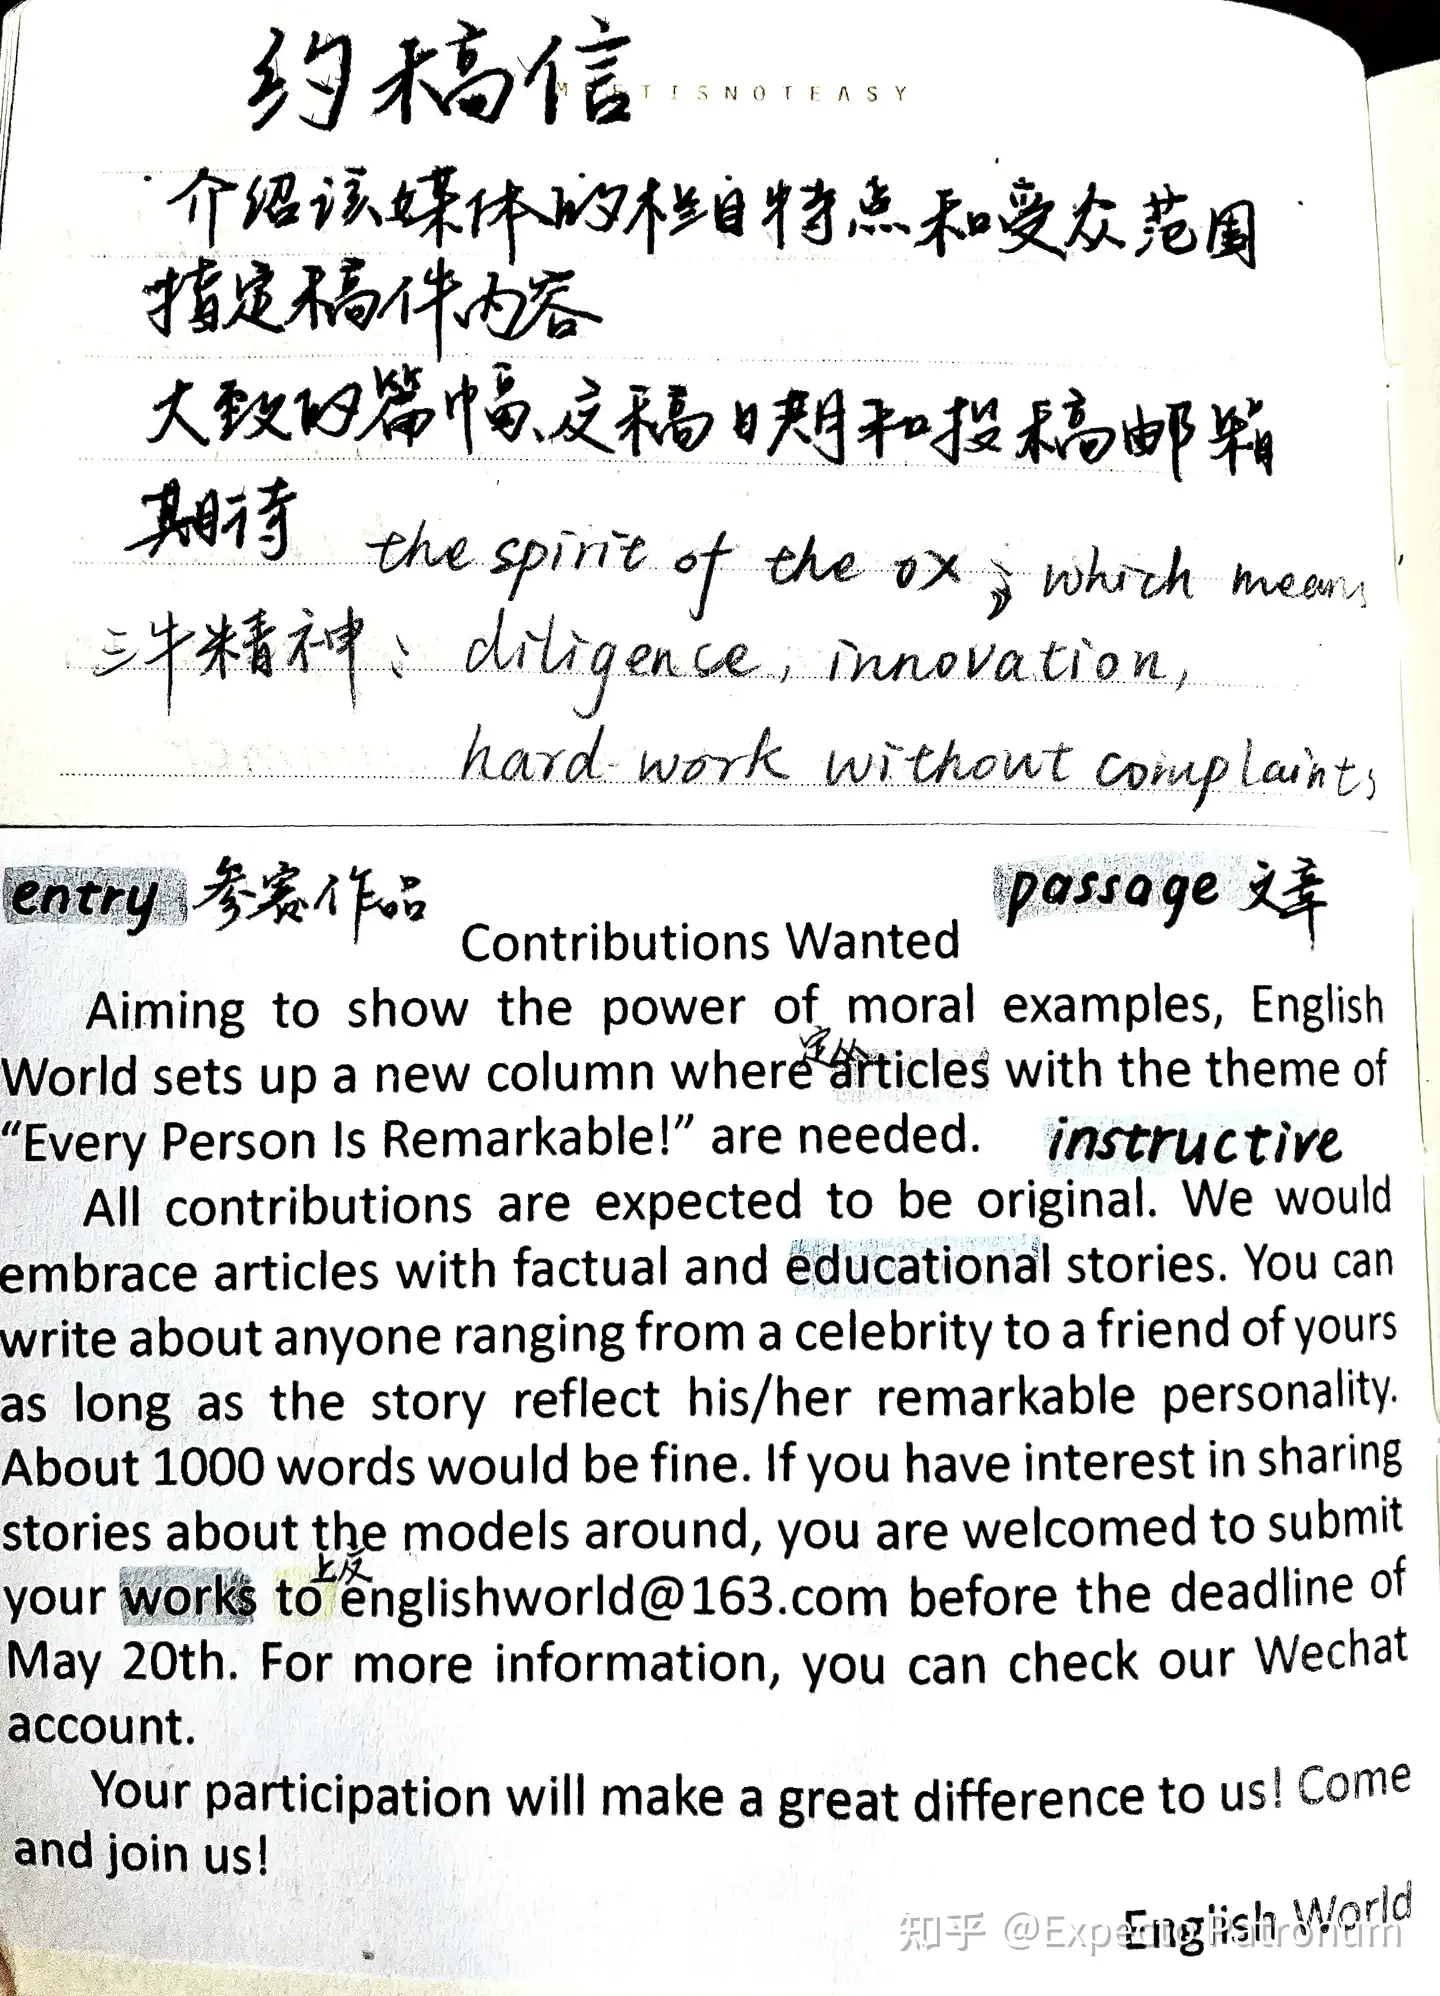 约稿信
MEETISNOTEASY
介绍该媒体的栏目特点和受众范围
指定稿件内容
大致的篇幅、交稿日期和投稿邮箱
期待
the spirit of the ox, which means
三牛精神: diligence, innovation,
hard work without complaints
entry 参赛作品
passage 文章
Contributions Wanted
Aiming to show the power of moral examples, English
定从
World sets up a new column where articles with the theme of
“Every Person Is Remarkable!” are needed.
instructive
All contributions are expected to be original. We would
embrace articles with factual and educational stories. You can
write about anyone ranging from a celebrity to a friend of yours
as long as the story reflect his/her remarkable personality.
About 1000 words would be fine. If you have interest in sharing
stories about the models around, you are welcomed to submit
上交
your works to englishworld@163.com before the deadline of
May 20th. For more information, you can check our Wechat
account.
Your participation will make a great difference to us! Come
and join us!
English World
知乎 @Expecto Patronum